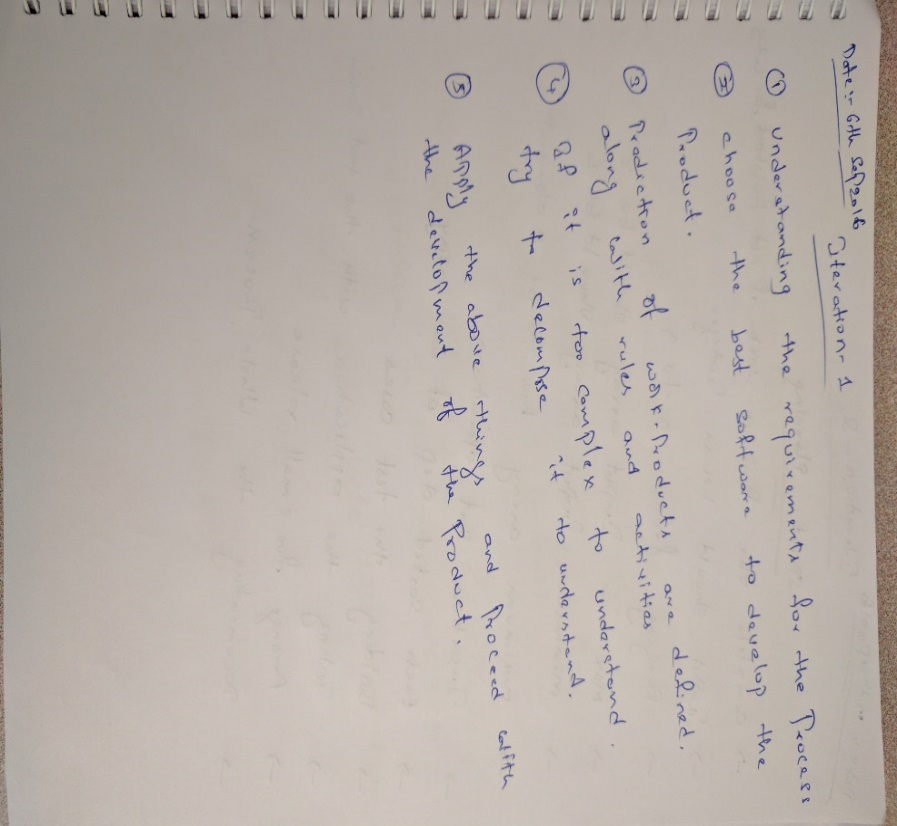 Date:- 6th Sep 2016
Iteration-1
① understanding the requirements for the Process
② choose the best software to develop the
Product.
③ Production of work-Products are defined.
along with rules and activities
④ If it is too complex to understand.
try to decompose it to understand.
⑤ Apply the above things and Proceed with
the development of the Product.